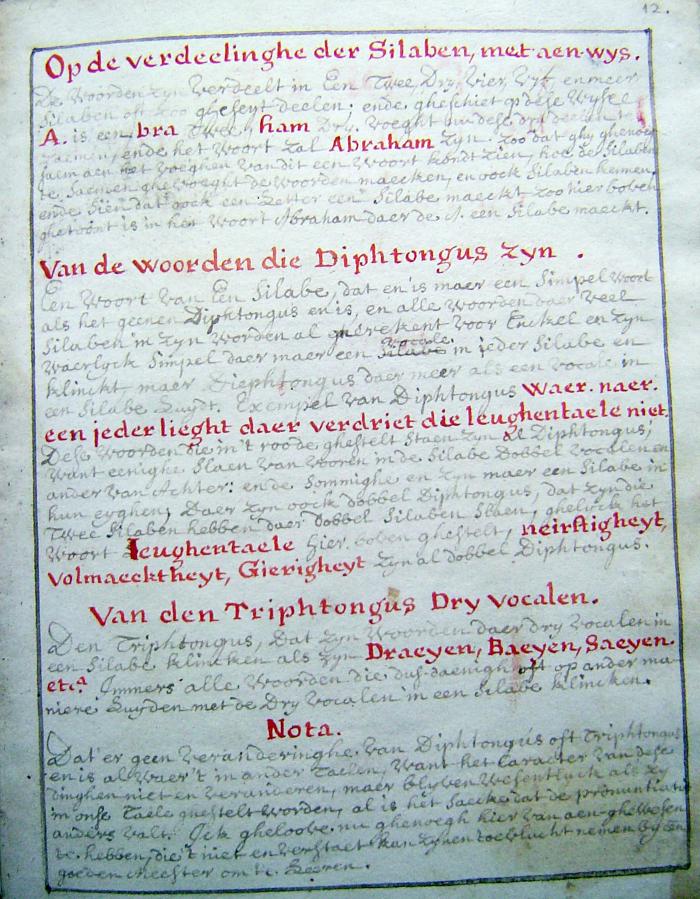 12.
Op de verdeelinghe der Silaben, met aen-wys.
De Woorden zyn Verdeelt in Een Twee, Dry, Vier, Vyf, en meer
Silaben oft zoo gheseyt deelen; ende gheschiet op dese Wysse
A. is een, bra Twee, ham Dry. Voeght nu dese dry deelen te
saemen, ende het Woort zal Abraham zyn. zoo dat ghy ghenoegh
saem aen het Voeghen van dit een Woort kondt zien, hoe de Silaben
te saemen ghevoeght de Woorden maecken, en oock Silaben kennen,
ende zien dat oock een Letter een Silabe maeckt zoo hier boven
ghetoont is in het Woort Abraham daer de A. een Silabe maeckt.
Van de woorden die Diphtongus zyn .
Een Woort van Een Silabe, dat en is maer een Simpel Woort
als het geenen Diphtongus en is, en alle Woorden daer Veel
Silaben in zyn worden al gherekent voor Enckel en zyn
Waerlyck Simpel daer maer een Vocale in jeder Silabe en
klinckt, maer Diephtongus daer meer als een Vocale in
een Silabe Luydt. Exempel van Diphtongus Waer. naer.
een jeder lieght daer verdriet die leughentaele niet.
Dese Woorden die in't roode ghestelt staen zyn al Diphtongus,
Want eenighe slaen van Voren in de Silabe Dobbel Vocalen en
ander van Achter: ende Sommighe en zyn maer een Silabe in
hun eyghen; Daer zyn oock dobbel Diphtongus, dat zyn die
Twee Silaben hebben daer dobbel Silaben Slaen, ghelyck het
Woort leughentaele hier boven ghestelt, neirstigheyt,
volmaecktheyt, Gierigheyt zyn al dobbel Diphtongus.
Van den Triphtongus Dry vocalen.
Den Triphtongus, Dat zyn Woorden daer dry Vocalen in
een Silabe klincken als zyn Draeyen, Baeyen, Saeyen.
etc.a Immers alle Woorden die dus-daenigh oft op ander ma
niere Luyden met de Dry Vocalen in een Silabe klincken.
Nota.
Dat er geen veranderinghe van Diphtongus oft Triphtongus
en is al Waer't in ander Taelen, Want het Caracter van dese
dinghen niet en veranderen, maer blyven Wesentlyck als zy
in onse Taele ghestelt worden, al is het saecke dat de pronuntiatie
anders valt. Ick gheloove nu ghenoegh hier van aen-ghewesen
te hebben, die't niet en verstaet kan zynen toevlucht nemen by een
goeden Meester om te Leeren.